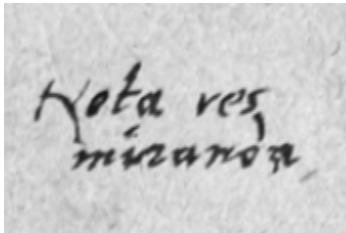 Nota res
miranda